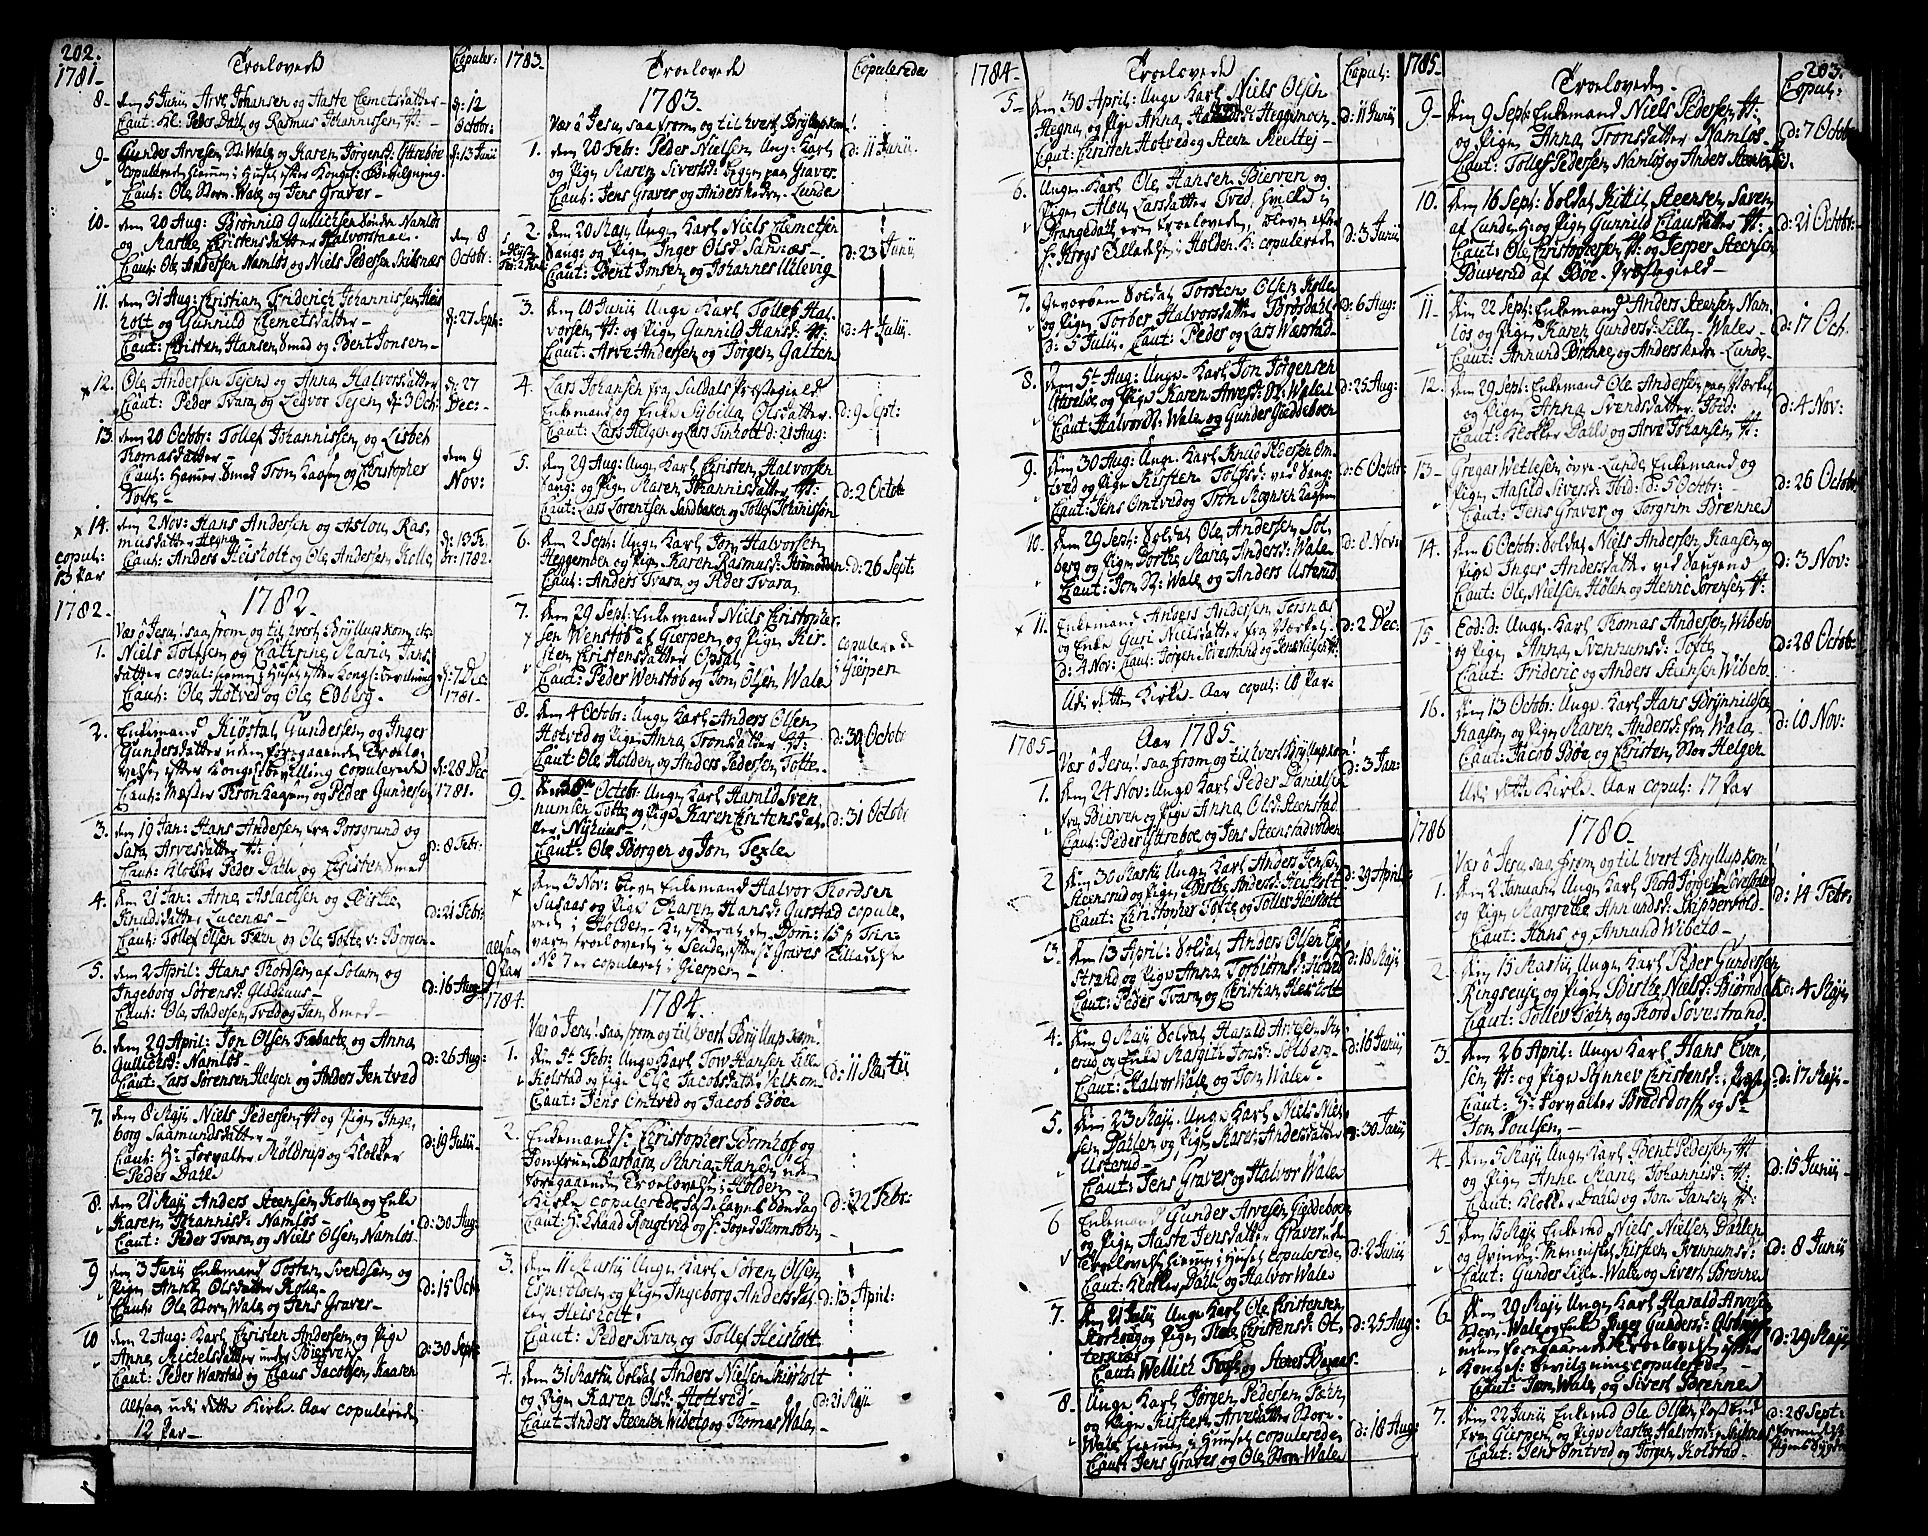 202.
1781-
Troelovede
Copuler:
8-
dem 5 Junii Arve Johansen og Aaste Clemetsdatter-
Caut: Kl: Peder Dahl og Rasmus Johannissen, H:-
d: 12
Octobr:
9-
Gunder Arvesen N: Wale og Karen Jørgensd: Ytterbøe
Copulerede hiemme i Huset efter Kongel: Befalgning
Caut: Ole Norn-Wale og Jens Graver-
d: 13 Junii
10.
dem 20 Aug: Brønild Gullichsen Namlos
og Christensdatter Halvorstaae.
Caut: Ole Andersen Namlos og Niels Pedersen
dem 8
Octobr:
11.
dem 31 Aug: Christian Friderich Johannissen Heis
holt og Gunnild Clemetsdatter-
Caut: Christen Hansen Smed og Bent Jonsen-
d: 27 Sept:
12.
Ole Andersen Tejen og Anna Halvorsdatter
Caut: Peder Tvara og Ledvor Tejen d: 3 Oct:
d: 27
Dec:-
13.
dem 20 Octobr: Tollef Johannissen og Lisbeth
Thomasdatter-
Caut: Hamer Smed Tron Kaasen og Christopher
Tofte-
dem 9
Nov:
14.
dem 2 Nov: Hans Andersen og Aslou Ras
musdatter Hegna-
Caut: Anders Heisholt og Ole Andersen Kolle
d: 13 Fe
br: 1782.
copul:
13 Par
1782.
1782.
Vær ô Jesu! saa from og til hvert Bryllup kom etc
1.
Niels Tollefsen og Cathrine Maria Jens
datter copul: hiemme i Huset efter Kongel: Bevilning
Caut: Ole Hotved og Ole Edberg-
d: 7 Dec
1781.
2.
Enkemand Kiøstol Gundersen og Inger
Gundersdatter uden foregaaende Troelo
velse efter Kongel: bevilling copulerede
Caut: Mester Tron Kaasen og Peder Gundersen
d: 28 Dec
1781.
3.
dem 19 Jan: Hans Andersen fra Porsgrund og
Sara Arvesdatter H:
Caut: Klokker Peder Dahl og Christen Smed
d: 8 Febr:
4.
dem 21 Jan: Arne Aslachsen og Birthe
Knudsdatter Lucenæs-
Caut: Tollef Olsen Fæn og Ole Tofte v: Borgen-
d: 21 Febr:
5.
dem 2 April: Hans Thordsen af Solum og
Ingeborg Sørensd: Gladhuus-
Caut: Ole Andersen Tved og Jan Smed-
d: 16 Aug:
6.
dem 29 April: Jon Olsen Fæbacte og Anna
Gullicsd: Namlos-
Caut: Lars Sørensen Helgen og Anders Jentved
d: 26 Aug:
7.
dem 8 Maji Niels Pedersen H: og Pigen Inge
borg Saamundsdatter-
Caut: Hr: Forvalter Møldrup og Klokker
Peder Dahl
d: 19 Julii-
8.
dem 21 Maji Anders Steensen Kolle og Enke
Karen Johannisd: Namlos-
Caut: Peder Tvara og Niels Olsen Namlos
d: 30 Aug:
9
dem 3 Junii Enkemand Tosten Svendsen og
Pigen Anne Olsdatter Kolle-
Caut: Ole Norn Wale og Jens Graver-
d: 15 Oct:
10
dem 2 Aug: Karl Christen Andersen og Pige
Anna Michelsdatter under Bierven
Caut: Peder Warstad og Claus Jacobsen Kaasen
d: 30 Sept:
Altsaa udi dette Kirke-Aar copulerede
12 Par-
1783-
Troelovede
Copulerede
1783.
Vær ô Jesu, saa from og til hvert Bryllup kom!
1.
dem 20 Febr: Peder Nielsen Ung: Karl
og Pigen Karen Siversd: begge paa Graver.
Caut: Jens Graver og Anders Neden-Lunde
d: 11 Junii:
2.
dem 20 Maji Ung: Karl Niels Clemetsen
Saug: og Pigen Inger Olsd: Sannæs-
Caut: Bent Jonsen og Johannes Ulevig
d: 23 Junii
3.
dem 10 Junii Unge Karl Tollef Hal
vorsen H: og Pigen Gunnild Hansd: H:
Caut: Arve Andersen og Jørgen Galten
d: 4 Julii-
4.
Lars Johansen fra Suldals Præstegield
Enkemand og Enke Sybilla Olsdatter-
Caut: Lars Helgen og Lars Tinholt d: 21 Aug:
d: 9 Sept:
5.
dem 29 Aug: Ung: Karl Christen Halvorsen
Saug: og Pigen Karen Johannisdatter H:
Caut: Lars Lorentsen Sandbaken og Tollef Johannissen
d: 2 Octob:
6.
dem 2 Sept: Ung: Karl Jon Halvorsen
Heggemoen og Pigen Karen Rasmusd:
Caut: Anders Tvara og Peder Tvara.
d: 26 Sept:
7.
dem 29 Sept: Enkemand Niels Christopher
sen Wenstøb af Gierpen og Pigen Kir
sten Christensdatter Opdal
Caut: Peder Wenstøb og Jon Olsen Wale
copulerede
i Gierpen
8.
dem 4 Octobr: Ung: Karl Anders Olsen
Hotved og Pigen Anna Tronsdatter H:
Caut: Ole Holden og Anders Pedersen Tofte-
d: 30 Octobr
9.
dem Octobr: Ung: Karl Harald Sven
numsen Tofte og Pige Karen Christensdat
ter Nyhuus-
Caut: Ole Borgen og Jon Texle
d: 31 Octobr
dem 3 Nov: blev Enkemand Halvor Thordsen
Susaas og Pige Maren Hansd: Gurstad copule
rede i Holden
No 7 er copuleret i Gierpen-
15 p Trin:
altsaa
9 Par
1784.
1784.
Vær ô Jesu! saa from og til hvert Bryllup kom!
1.
dem 5t Febr: Unge Karl Tov Hansen Lille
Kolstad og Pige Else Jacobsdatter Velkom
Caut: Jens Omtved og Jacob Bøe
d: 11 Martii
2.
Enkemand Sr: Christopher Bomhof og
Jomfrue Barbara Maria Hansen uden
foregaaende Troelovelse i Holden
Kirke copulerede
Caut: Hr: Ehaad Rougtved og Sr: Foged Thomsohn
d: 22 Febr:
3.
dem 11 Martii Unge Karl Søren Olsen
Espestloen og Pigen Ingeborg Andersdat
ter Heisholt.
Caut: Peder Tvara og Tollef Heisholt
d: 13 April:
4.
dem 31 Martii Soldat Anders Nielsen Heisholt
og Pigen Karen Olsd: Hottved-
Caut Anders Steensen Wibeto og Thomas Wale
d: 21 Maji
1784-
Troelovede
Copul:
5-
dem 30 April: Unge Karl Niels Olsen
Hegna og Pige Anna Heggemoen-
Caut: Christen Hotved og Steen
d: 11 Junii
6.
Unge Karl Ole Hansen Bierven og
Pigen Alou Larsdatter Tved, hvilke i
Drangedahl ere troelovede, bleve efter
Hr: Korgs Tilladelse i Holden K: copulerede
d: 3 Junii
7.
Gevorben Soldat Torsten Olsen Kolle
og Pigen Torber Halvorsdatter Brøsdahl
d: 5 Julii. Caut: Peder og Lars Wærstad-
d: 6 Aug:
8.
dem 5t Aug: Unge Karl Jon Jørgensen
Ytterbøe og Pige Karen Arvesd: N: Wale
Caut: Halvor N: Wale og Gunder Gieddeboen
d: 25 Aug:
9.
dem 30 Aug: Unge Karl Knud Pedersen Om
tved og Pige Kirsten Tolfsd: ved Saug:
Caut: Jens Omtved og Tron Mognsen Kaasen
d: 6 Octobr:
10.
dem 29 Sept: Soldat Ole Andersen Sol
berg og Pigen Dorthe Maria Andersd: Wale
Caut: Jon N: Wale og Anders Usterud
d: 8 Nov:
11.
Enkemand Anders Andersen Torsnæs
og Enke Guri Nielsdatter fra Mærkel
d: 4 Nov: Caut: Jørgen Sovestrand og Jens Nilsen H:
d: 2 Dec:
Udi dette Kirke-Aar copul: 10 Par-
1785-
Aar 1785-
Vær ô Jesu! saa from og til hvert Bryllup kom!
1.
dem 24 Nov: Unge Karl Peder Danielse
fra Bierven og Pige Anna Olsd: Steenstad
Caut: Peder Ytterboe og Jens Steenstadvolden
d: 3 Jan:
2
dem 30 Martii Unge Karl Anders Jensen
Steensrud og Pigen Birthe Andersd: Heisholt
Caut: Christopher Tofte og Tollef Heisholt
d: 29 April:
3.
dem 13 April: Soldat Anders Olsen
Strand og Pige Anna Torbiørnsd: Hotved
Caut: Peder Tvara og Christian Heisholt
d: 18 Maji
4-
dem 9 Maji Soldat Harald Arvesen
erud og Enke Margit Jonsd: Solberg-
Caut: Halvor Wale og Jon Wale-
d: 16 Junii
5.
dem 23 Maji Unge Karl Niels Niel
sen Dahlen og Pigen Karen Andersdatter
Usterud-
Caut: Jens Graver og Halvor Wale
d: 30 Junii
6
Enkemand Gunder Arvesen Gieddeboen
og Pigen Aaste Jensdatter Graver uden
Troelovelse hiemme i Huset copulerede
Caut: Klokker Dahl og Halvor Wale
d: 2 Junii
7.
dem 21 Julii Unge Karl Ole Christensen
og Pigen Thale Christensd: Ot
ternæs-
Caut: Wellich og Steen
d: 25 Aug:
8-
Unge Karl Jørgen Pedersen Fæhn
og Pige Kirsten Arvesdatter Norn
Wale hiemme i Huset copulerede
Caut: Jens Graver og Ole Norn Wale
d: 18 Aug:
1785-
203.
Troelovede-
Copul:
9-
dem 9 Sept: Enkemand Niels Pedersen H:
og Pigen Anna Tronsdatter Namlos-
Caut: Tollef Pedersen Namlos og Anders
d: 7 Octob:
10.
dem 16 Sept: Soldat Kittil Steensen Saven
af Lunde H: og Pigen Gunnild Clausdatter H:
Caut: Ole Christophersen H: og Jesper Steensen
Buverud af Bøe-Præstegield-
d: 21 Octobr:
11-
dem 22 Sept: Enkemand Anders Steensen Nam
los og Pigen Karen Gundersd: Lille-Wale-
Caut: Annund Brenne og Anders Neden-Lunde-
d: 17 Oct.
12.
dem 29 Sept: Enkemand Ole Andersen paa Mærkel
og Pigen Anna Svendsdatter Ibid:
Caut: Klokker Dahl og Arve Johansen H:
d: 4 Nov:
13-
Gregar Wetlesen øvre-Lunde, Enkemand og
Pigen Aasild Siversd: Ibid: d: 5 Octobr:
Caut: Jens Graver og Torgrim Brenne
d: 26 Octobr
14.
dem 6 Octobr: Soldat Niels Andersen Kaasen og
Pige Inger Andersdatter ved Saugene
Caut: Ole Nielsen Holen og Henric Sørensen H:
d: 3 Nov:
15-
Eod: d: Unge Karl Thomas Andersen Wibeto
og Pigen Anna Svennumsd: Tofte
Caut: Frideric og Anders Steensen Wibeto.
d: 28 Octobr-
16.
dem 13 Octobr: Unge Karl Hans Brynnildsen
Kaasen og Pigen Karen Andersd: fra Wala-
Caut: Jacob Bøe og Christen Nor Helgen
d: 10 Nov:
Udi dette Kirke-Aar copul: 17 Par
1786
1786-
Vær ô Jesu saa from og til hvert Bryllup kom!
1.
dem 2 Januarii Ung Karl Thord Jørgens Sovestrand
og Pigen Margrethe Annundsd: Skippervold-
Caut: Hans og Annund Wibeto-
d: 14 Febr:
2-
dem 15 Martii Unge Karl Peder Gundersen
Ringsevje og Pigen Birthe Nielsd: Biørndal
Caut: Tollev Fæhn og Thord Sovestrand
d: 4 Maji
3.
dem 26 April: Unge Karl Hans Even
sen H: og Pige Synnev Christensd:
Caut: Hr: Forvalter Bredsdorff og Sr
Jon Poulsen-
d: 17 Maji-
4-
dem 5 Maji Unge Karl Bent Pedersen H:
og Pigen Anne Marie Johannisd: H:
Caut: Klokker Dahl og Jon Jansen H:
d: 15 Junii-
5.
dem 15 Maji Enkemd Niels Nielsen Dahlen
og Qvinde Mennisket Kirsten Svennumsd:
Caut: Gunder Lille-Wale og Sivert Brenne
d: 8 Junii
6-
dem 29 Maji Unge Karl Harald Arvesen
Norn-Wale og Enke Inger Gundersd:
uden foregaaende Troelovelse efter
Kongel: Bevilgning copulerede-
Caut: Jon Wale og Sivert Brenne
d: 29 Maji
7.
dem 22 Junii Enkemd Ole Olsen
fra Gierpen og Pige Martha Halvorsd:
Caut: Jens Omtved og Jørgen Kolstad-
d: 28 Sept: